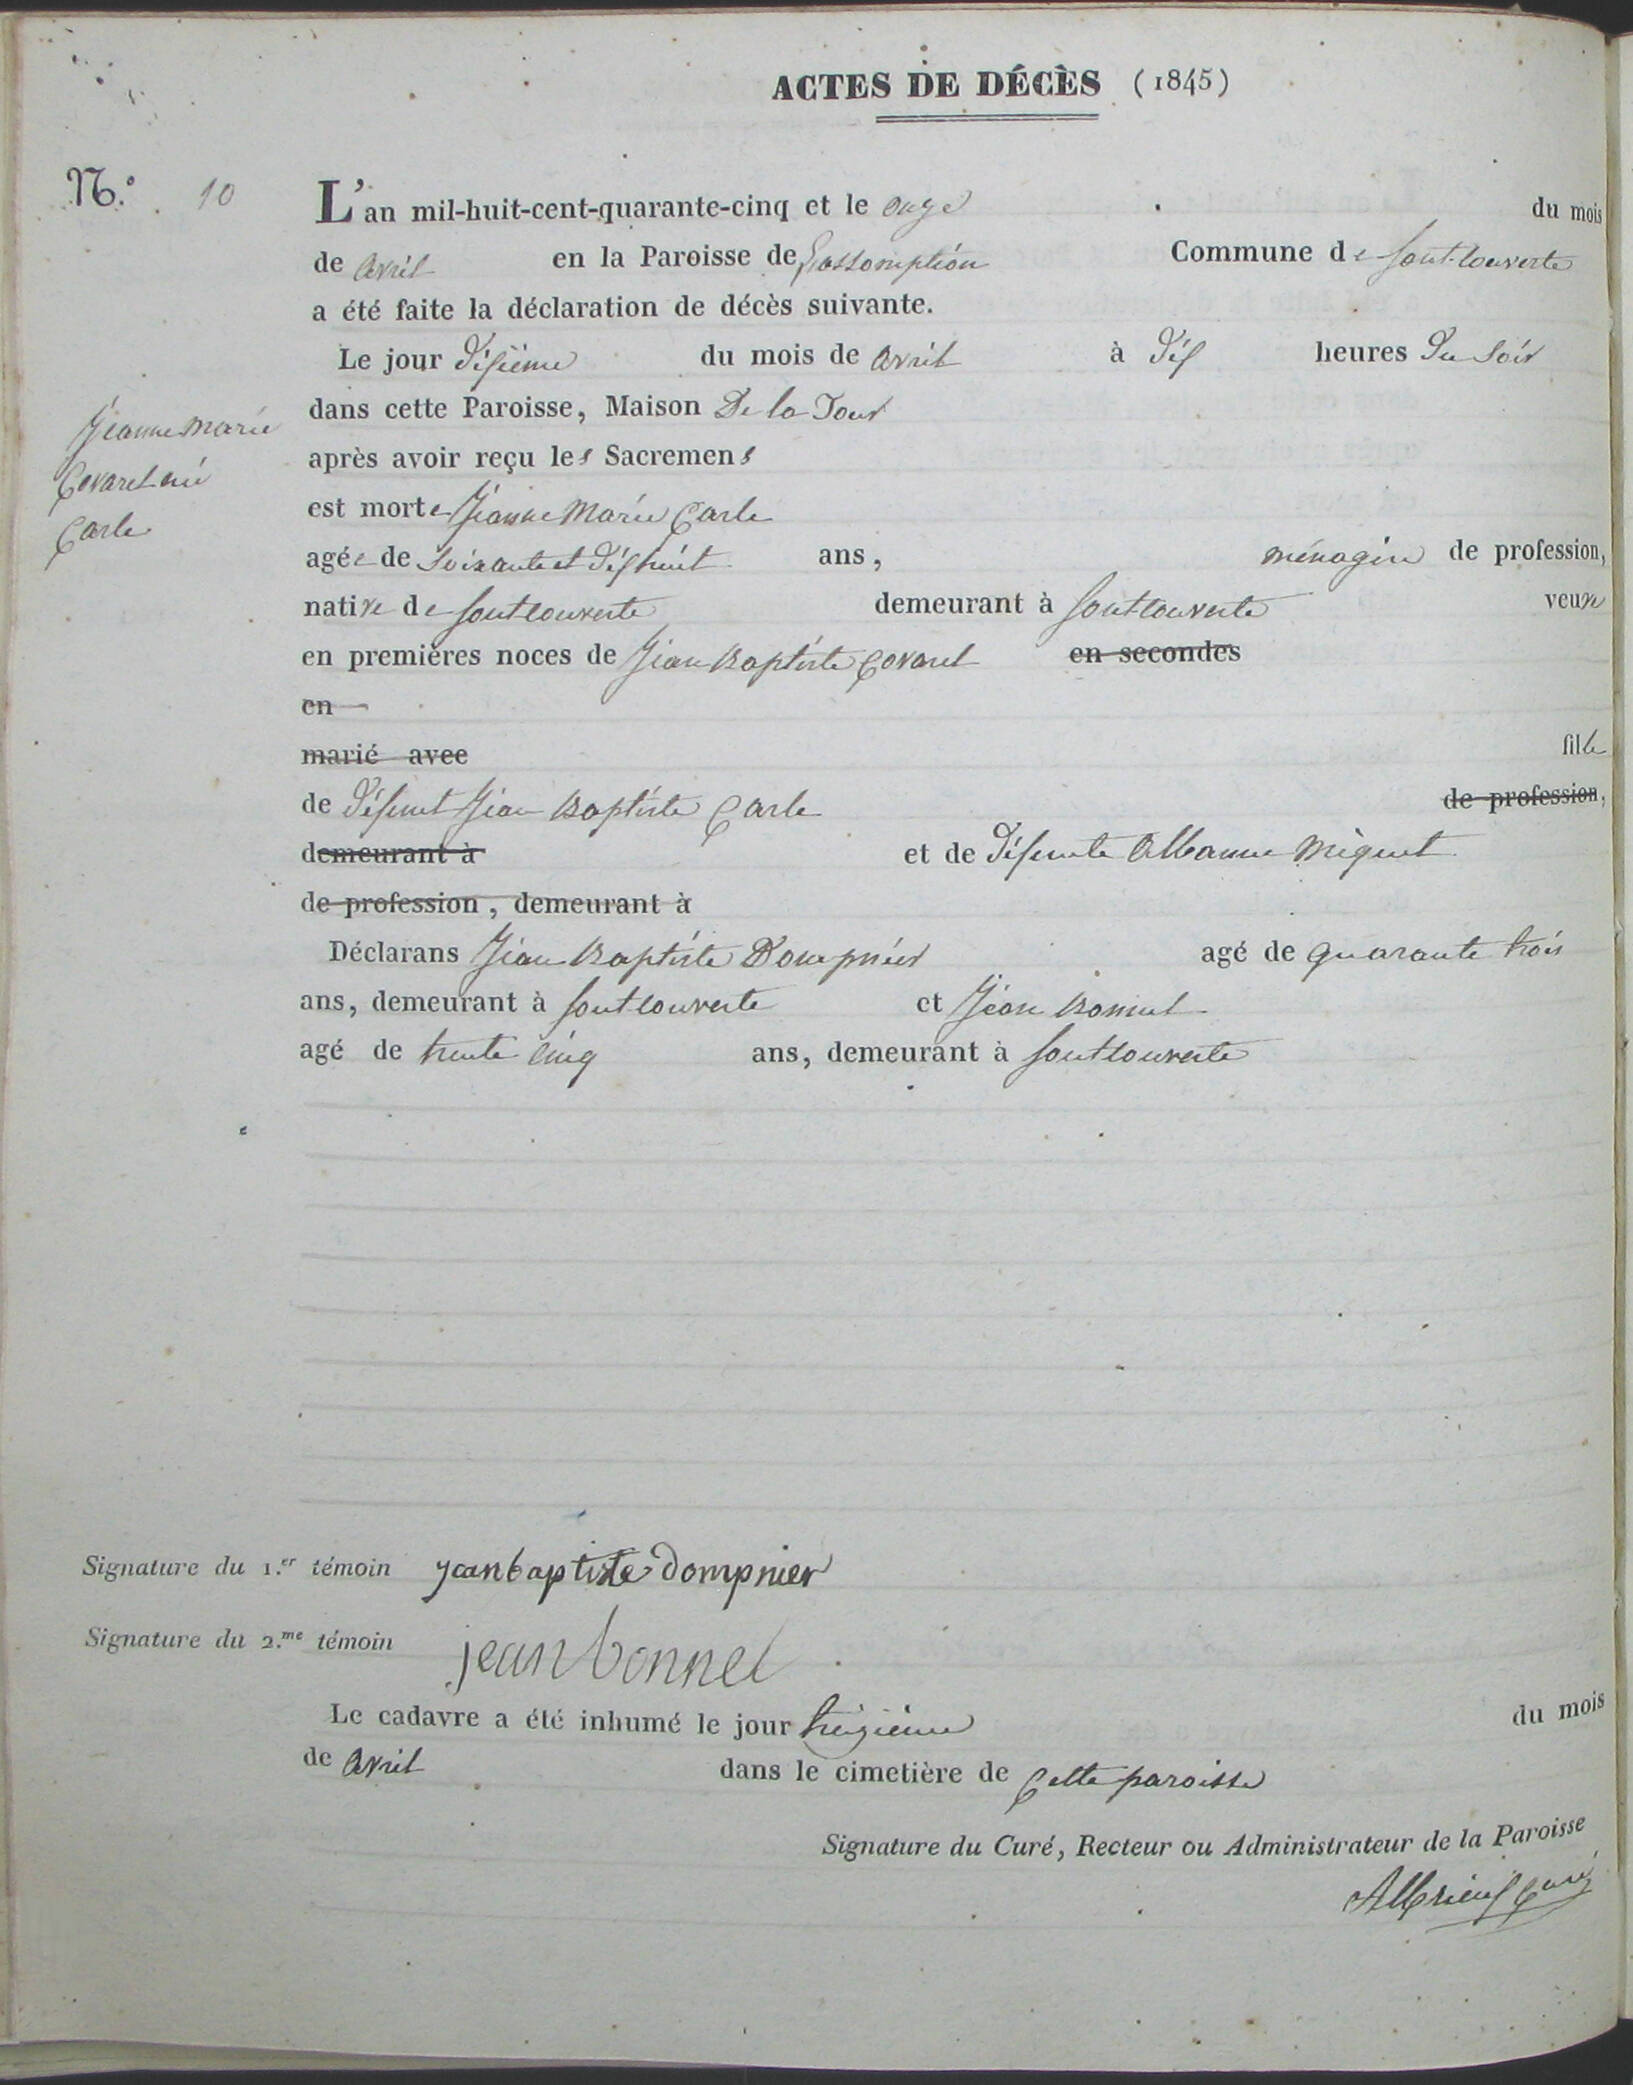 ACTES DE DÉCÈS (1845)
N.° 10
L'an mil-huit-cent-quarante-cinq et le onze du mois
de avril en la Paroisse de L'assomption Commune de fontcouverte
a été faite la déclaration de décès suivante.
Le jour disième du mois de avril à dis heures du soir
dans cette Paroisse, Maison De la Tour
Jeanne Marie
Covarel née
Carle
après avoir reçu les Sacremens
est morte Jeanne Marie Carle
agée de soixante et dishuit ans, ménagère de profession,
native de fontcouverte demeurant à fontcouverte veuve
en premières noces de Jean Baptiste Covarel en secondes
en
marié avec fille
de défunt Jean Baptiste Carle de profession,
demeurant à et de défunte Albanne Miquet
de profession, demeurant à
Déclarans Jean Baptiste Dompnier agé de quarante trois
ans, demeurant à fontcouverte et Jean Bonnel
agé de trente cinq ans, demeurant à fontcouverte
Signature du 1.er témoin jean baptiste dompnier
Signature du 2.me témoin jean bonnel
Le cadavre a été inhumé le jour treizième du mois
de avril dans le cimetière de cette paroisse
Signature du Curé, Recteur ou Administrateur de la Paroisse
Albrieux Curé